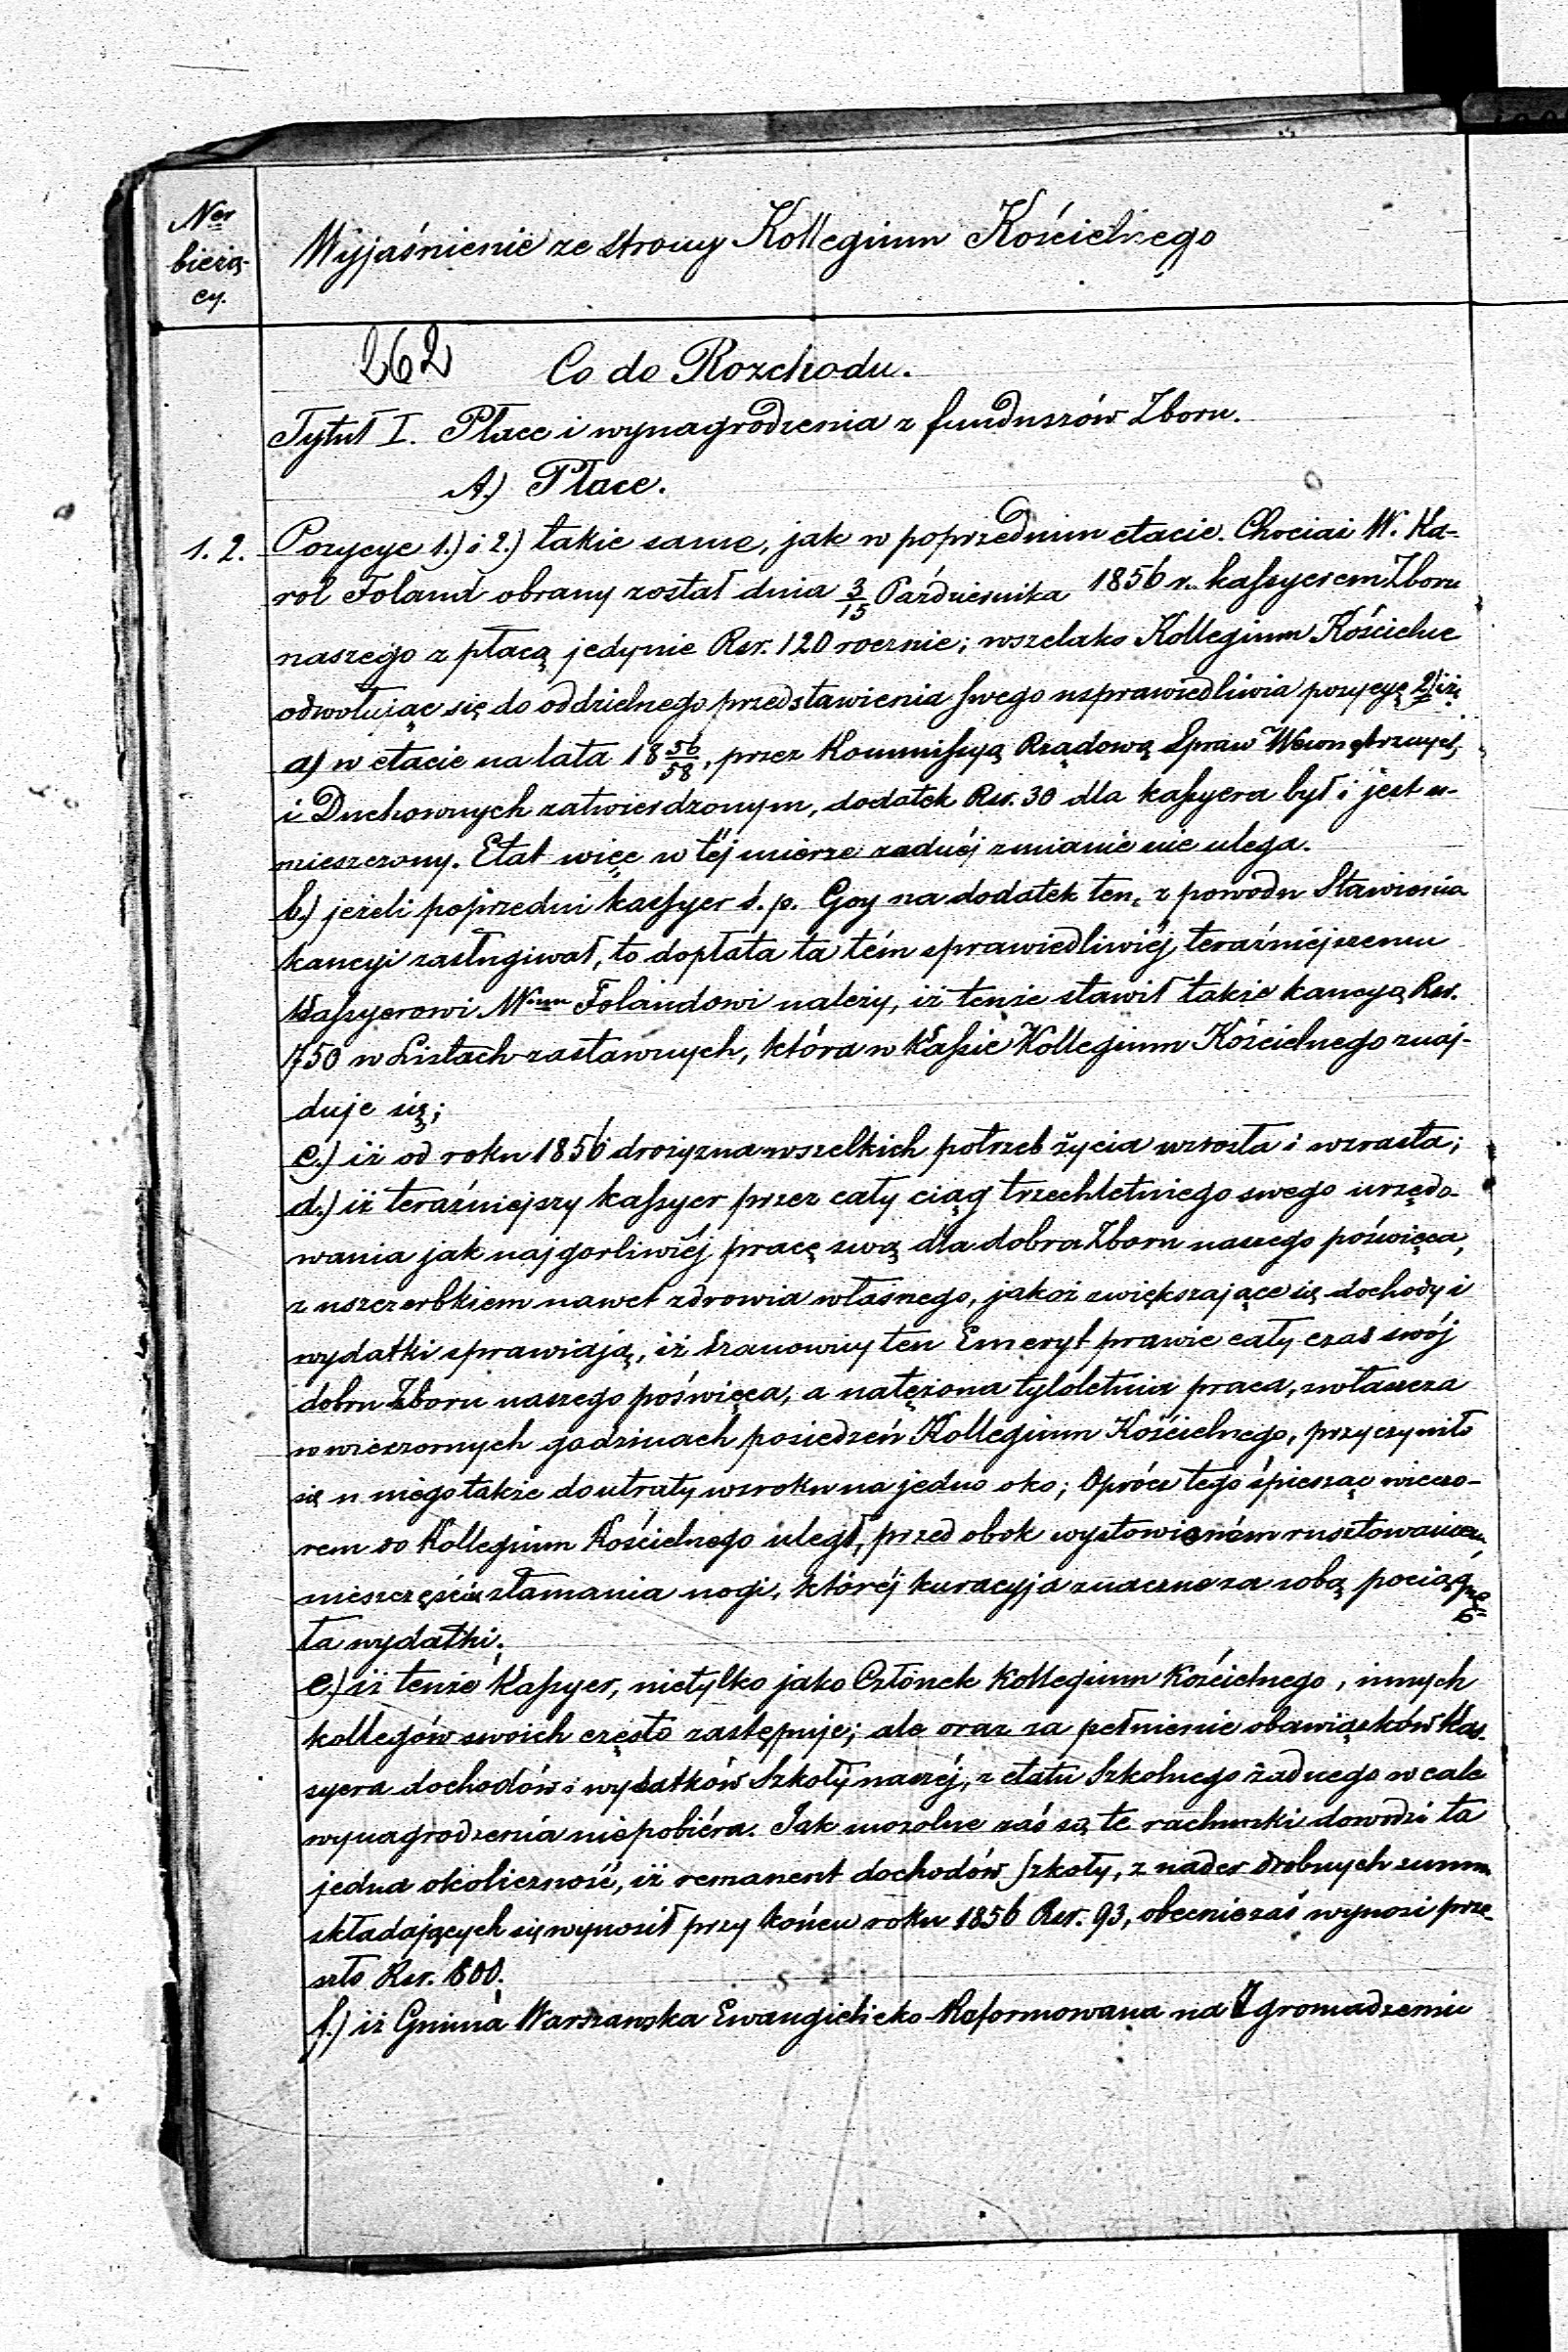 Ner
bieżą-
cy.
Wyjaśnienie ze strony Kollegium Kościelnego
262 Co do Rozchodu.
Tytuł I. Płace i wynagrodzenia z funduszów Zboru.
A.) Płace.
1. 2. Pozycye 1.) i 2.) takie same, jak w poprzednim etacie. Chociaż W. Ka-
rol Foland obrany został dnia 3/15 Października 1856 r. kassyerem Zboru
naszego z płacą jedynie Rsr. 120 rocznie; wszelako Kollegium Kościelne
odwołując się do oddzielnego przedstawienia swego usprawiedliwia pozycyę 2) iż
a) w etacie na lata 18 56/58, przez Kommissyą Rządową Spraw Wewnętrznych,
i Duchownych zatwierdzonym, dodatek Rsr. 30 dla kassyera był i jest u-
mieszczony. Etat więc w téj mierze żadnéj zmianie nie ulega.
b.) jeżeli poprzedni kassyer ś. p. Goy na dodatek ten, z powodu Stawienia
kaucyi zasługiwał, to dopłata ta tém sprawiedliwiéj teraźniejszemu
kassyerowi Wmu Folandowi należy, iż tenże stawił także kaucyą Rsr.
750 w Listach zastawnych, która w kassie Kollegium Kościelnego znaj-
duje się;
c.) iż od roku 1856 drożyzna wszelkich potrzeb życia wzrosła i wzrasta;
d.) iż teraźniejszy kassyer przez cały ciąg trzechletniego swego urzędo-
wania jak najgorliwiéj pracę swą dla dobra Zboru naszego poświęca,
z uszczerbkiem nawet zdrowia własnego, jakoż zwiększające się dochody i
wydatki sprawiają, iż Szanowny ten Emeryt prawie cały czas swój
dobru Zboru naszego poświęca, a natężona tyloletnia praca, zwłaszcza
w wieczornych godzinach posiedzeń Kollegium Kościelnego, przyczyniło
się u niego także do utraty wzroku na jedno oko; Oprócz tego śpiesząc wieczo-
rem do Kollegium Kościelnego uległ, przed obok wystawioném rusztowaniem,
nieszczęściu złamania nogi, któréj kuracyja znaczne za sobą pociągnę-
ła wydatki.
e.) iż tenże kassyer, nietylko jako Członek Kollegium Kościelnego, innych
kollegów swoich często zastępuje; ale oraz za pełnienie obowiązków Kas-
syera dochodów i wydatków Szkoły naszéj, z etatu Szkolnego żadnego wcale
wynagrodzenia niepobiéra. Jak mozolne zaś są te rachunki dowodzi ta
jedna okoliczność, iż remanent dochodów Szkoły, z nader drobnych summ
składających się wynosił przy końcu roku 1856 Rsr. 93, obecnie zaś wynosi prze-
szło Rsr. 600.
f.) iż Gmina Warszawska Ewangielicko-Reformowana na Zgromadzeniu